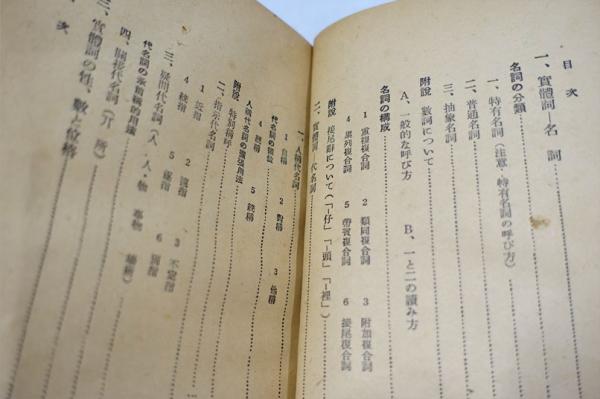 目次
一、實體詞―名詞
名詞の分類
一、特有名詞（注意・特有名詞の呼び方）
二、普通名詞
三、抽象名詞
附說 數詞について
A、一般的な呼び方 B、一と二の讀み方
名詞の構成
1 重複複合詞 2 類同複合詞 3 附加複合詞
4 累列複合詞 5 帶賓複合詞 6 接尾複合詞
附說 接尾辭について（「―仔」「―頭」「―裡」）
二、實體詞―代名詞
一、人稱代名詞
1 自稱 2 對稱 3 他稱
4 統稱 5
代名詞の領位
人稱代名詞の
附說 特別稱呼
二、指示代名詞
1 近指 2 遠指 3 不定指
4 統指 5 6
三、疑問代名詞（人・人、物 事物
代名詞の
四、關接代名詞（介、所）
三、實體詞の性、數と位格
次